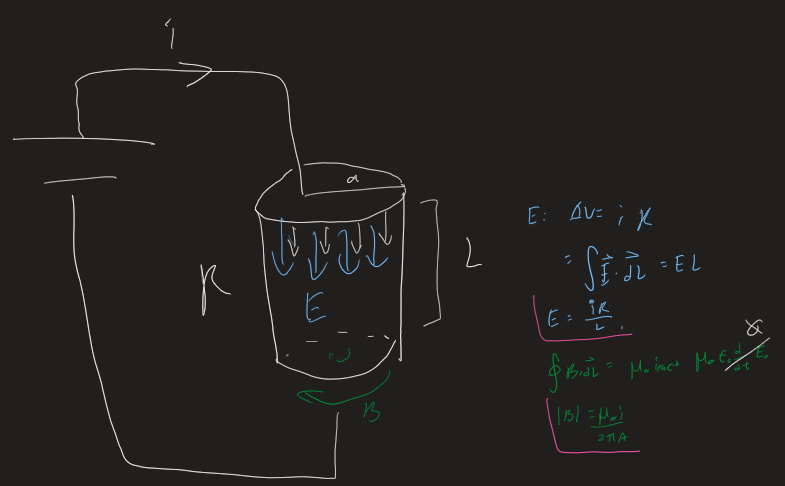 i
a
R
E
L
B
E: ΔV = i R
= ∫ E⃗ · dL⃗ = E L
E = iR / L .
∮ B · dL⃗ = μ₀ i enc + μ₀ ε₀ d/dt
|B| = μ₀ i / 2πA